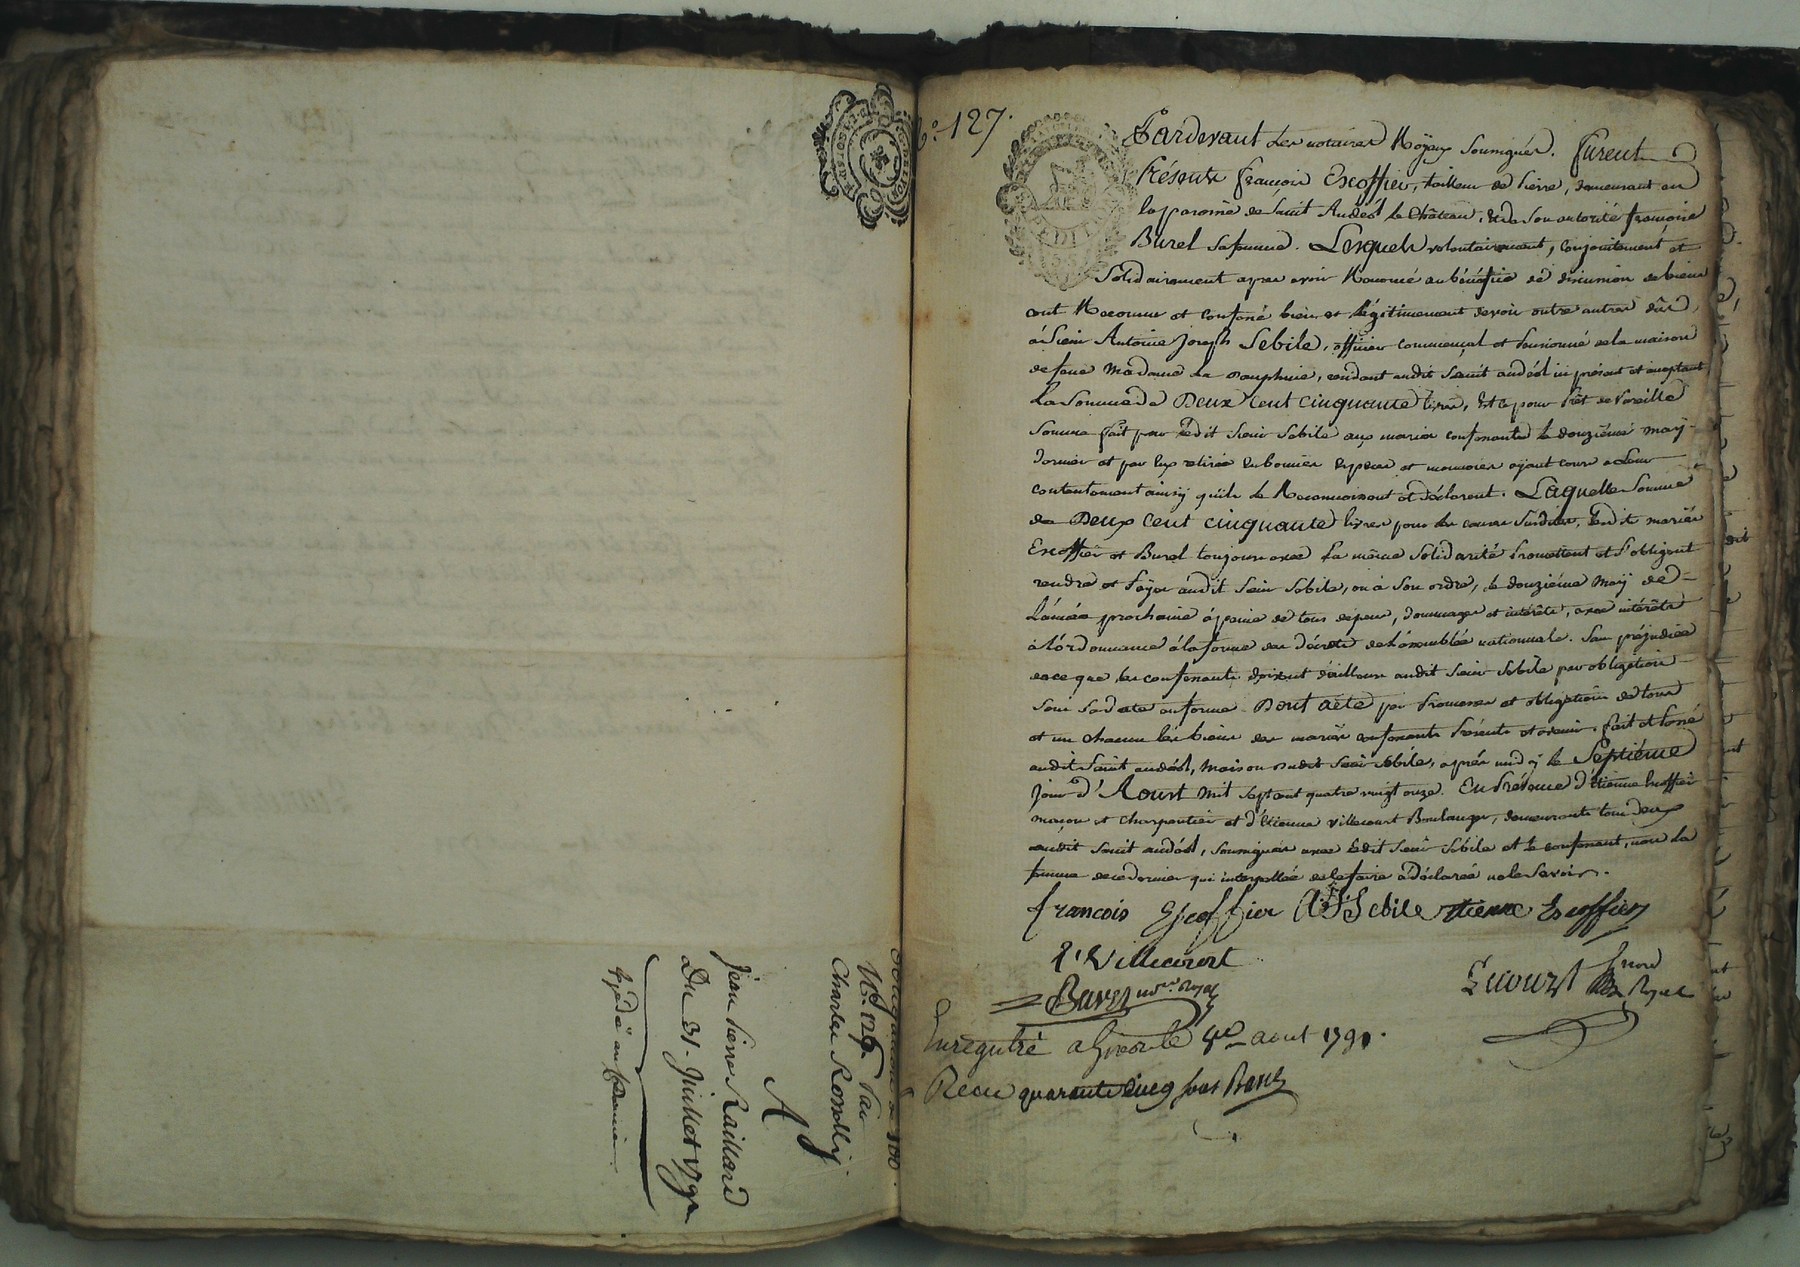 N°. 127.
Pardevant les notaires Royaux soussignés. furent
Présents françois Escoffier, tailleur de Pierre, demeurant en
la paroisse de Saint Andéol le Château, et de son autorité françoise
Burel sa femme. Lesquels volontairement, conjointement et
Solidairement apres avoir Renoncé au bénéfice de discussion de biens
ont Reconnu et confessé bien et légitimement devoir outre autres dûs,
à Sieur Antoine Joseph Sebile, officier commençal et Pensionné de la maison
de feue Madame La dauphine, rendant audit Saint andéol ici présent et acceptant
La Somme de Deux Cent cinquante livres, Et ce pour Prêt de Pareille
Somme fait par Ledit Sieur Sebile aux mariés confessants le douzième may
dernier et par eux retirée en bonnes espèces et monnoies ayant cours a Leur
contentement ainsy qu'ils le Reconnoissent et déclarent. Laquelle Somme
de Deux Cent cinquante livres pour les causes Susdites, Lesdits mariés
Escoffier et Burel toujours avec La même Solidarité Promettent et S'obligent
rendre et Payer audit Sieur Sebile, ou à Son ordre, le douzième May de
L'année prochaine à peine de tous dépens, dommages et intérêts, avec intérêts
à l'ordonnance à la forme des décrets de L'assemblée nationnale. Sans préjudice
de ce que les confessants doivent d'ailleurs audit Sieur Sebile par obligation
Sous Sa date en forme. Dont acte par Promesses et obligation de tous
et un chacun les biens des mariés confessants Présents et avenir. fait et Passé
audit Saint andéol, Maison dudit Sieur Sebile, après midy le Septième
Jour d'Aoust Mil Sept cent quatre vingt onze. En Présence d'étienne Escoffier
maçon et charpentier et d'étienne Villecourt Boulanger, demeurants tous deux
audit Saint andéol, Soussignés avec Ledit Sieur Sebile et le confessant, non la
femme de ce dernier qui interpellée de le faire a déclaré ne le Savoir.
francois Escoffier A: J: Sebile etienne Escoffier
E: Villecourt
Enregistré a Givors le aout 1791.
Reçu quarante cinq sous
N°. 129 Par
Charles
A
Jean Pierre Raillard
Du 31. Juillet 1791